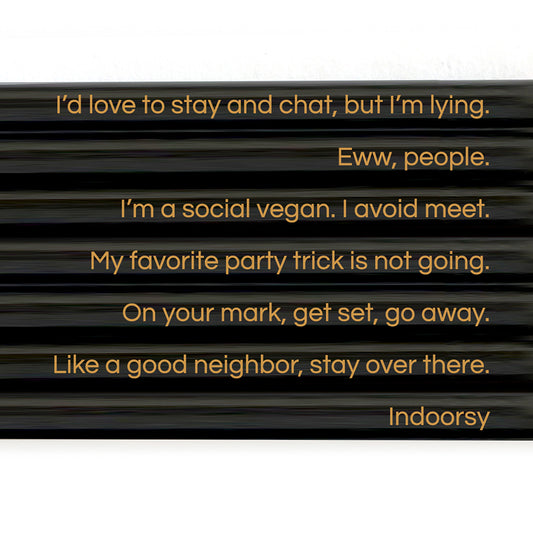 I’d love to stay and chat, but I’m lying.
Eww, people.
I’m a social vegan. I avoid meet.
My favorite party trick is not going.
On your mark, get set, go away.
Like a good neighbor, stay over there.
Indoorsy